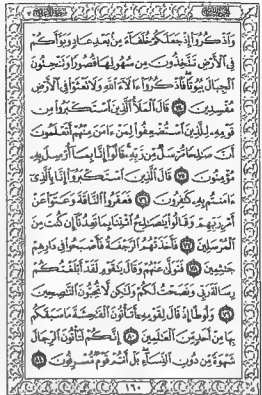 وَٱذۡكُرُوٓاْ إِذۡ جَعَلَكُمۡ خُلَفَآءَ مِنۢ بَعۡدِ عَادٖ وَبَوَّأَكُمۡ
فِي ٱلۡأَرۡضِ تَتَّخِذُونَ مِن سُهُولِهَا قُصُورٗا وَتَنۡحِتُونَ
ٱلۡجِبَالَ بُيُوتٗاۖ فَٱذۡكُرُوٓاْ ءَالَآءَ ٱللَّهِ وَلَا تَعۡثَوۡاْ فِي ٱلۡأَرۡضِ
مُفۡسِدِينَ ٧٤ قَالَ ٱلۡمَلَأُ ٱلَّذِينَ ٱسۡتَكۡبَرُواْ مِن
قَوۡمِهِۦ لِلَّذِينَ ٱسۡتُضۡعِفُواْ لِمَنۡ ءَامَنَ مِنۡهُمۡ أَتَعۡلَمُونَ
أَنَّ صَٰلِحٗا مُّرۡسَلٞ مِّن رَّبِّهِۦۚ قَالُوٓاْ إِنَّا بِمَآ أُرۡسِلَ بِهِۦ
مُؤۡمِنُونَ ٧٥ قَالَ ٱلَّذِينَ ٱسۡتَكۡبَرُوٓاْ إِنَّا بِٱلَّذِيٓ
ءَامَنتُم بِهِۦ كَٰفِرُونَ ٧٦ فَعَقَرُواْ ٱلنَّاقَةَ وَعَتَوۡاْ عَنۡ
أَمۡرِ رَبِّهِمۡ وَقَالُواْ يَٰصَٰلِحُ ٱئۡتِنَا بِمَا تَعِدُنَآ إِن كُنتَ مِنَ
ٱلۡمُرۡسَلِينَ ٧٧ فَأَخَذَتۡهُمُ ٱلرَّجۡفَةُ فَأَصۡبَحُواْ فِي دَارِهِمۡ
جَٰثِمِينَ ٧٨ فَتَوَلَّىٰ عَنۡهُمۡ وَقَالَ يَٰقَوۡمِ لَقَدۡ أَبۡلَغۡتُكُمۡ
رِسَالَةَ رَبِّي وَنَصَحۡتُ لَكُمۡ وَلَٰكِن لَّا تُحِبُّونَ ٱلنَّٰصِحِينَ
٧٩ وَلُوطًا إِذۡ قَالَ لِقَوۡمِهِۦٓ أَتَأۡتُونَ ٱلۡفَٰحِشَةَ مَا سَبَقَكُم
بِهَا مِنۡ أَحَدٖ مِّنَ ٱلۡعَٰلَمِينَ ٨٠ إِنَّكُمۡ لَتَأۡتُونَ ٱلرِّجَالَ
شَهۡوَةٗ مِّن دُونِ ٱلنِّسَآءِۚ بَلۡ أَنتُمۡ قَوۡمٞ مُّسۡرِفُونَ ٨١
١٦٠